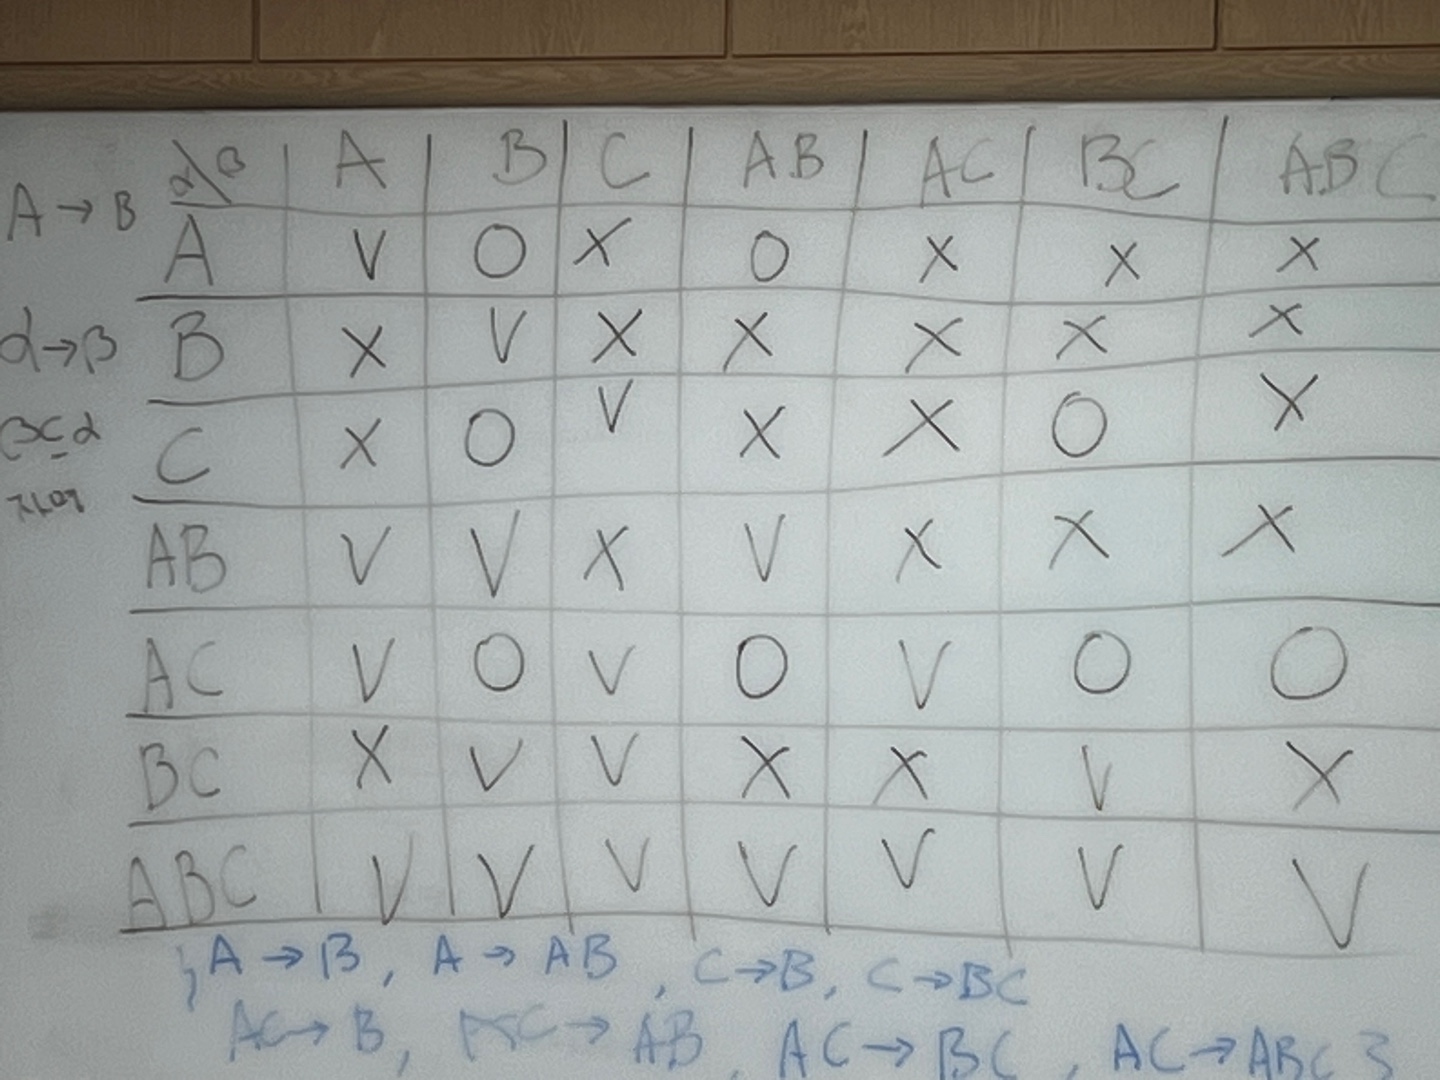 α\β A B C AB AC BC ABC
A → B
A V O X O X X X
α→β B X V X X X X X
β⊆α
C X O V X X O X
AB V V X V X X X
AC V O V O V O O
BC X V V X X V X
ABC V V V V V V V
{A → B, A → AB, C → B, C → BC
AC → B, AC → AB, AC → BC, AC → ABC}